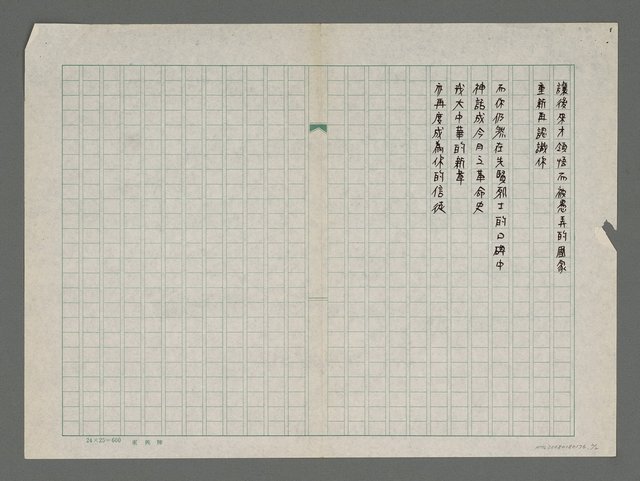 讓後來才領悟而被愚弄的國家
重新再認識你
而你仍然在先賢烈士的口碑中
神話成今日之革命史
我大中華的新筆
亦再度成為你的信徒
24×25=600